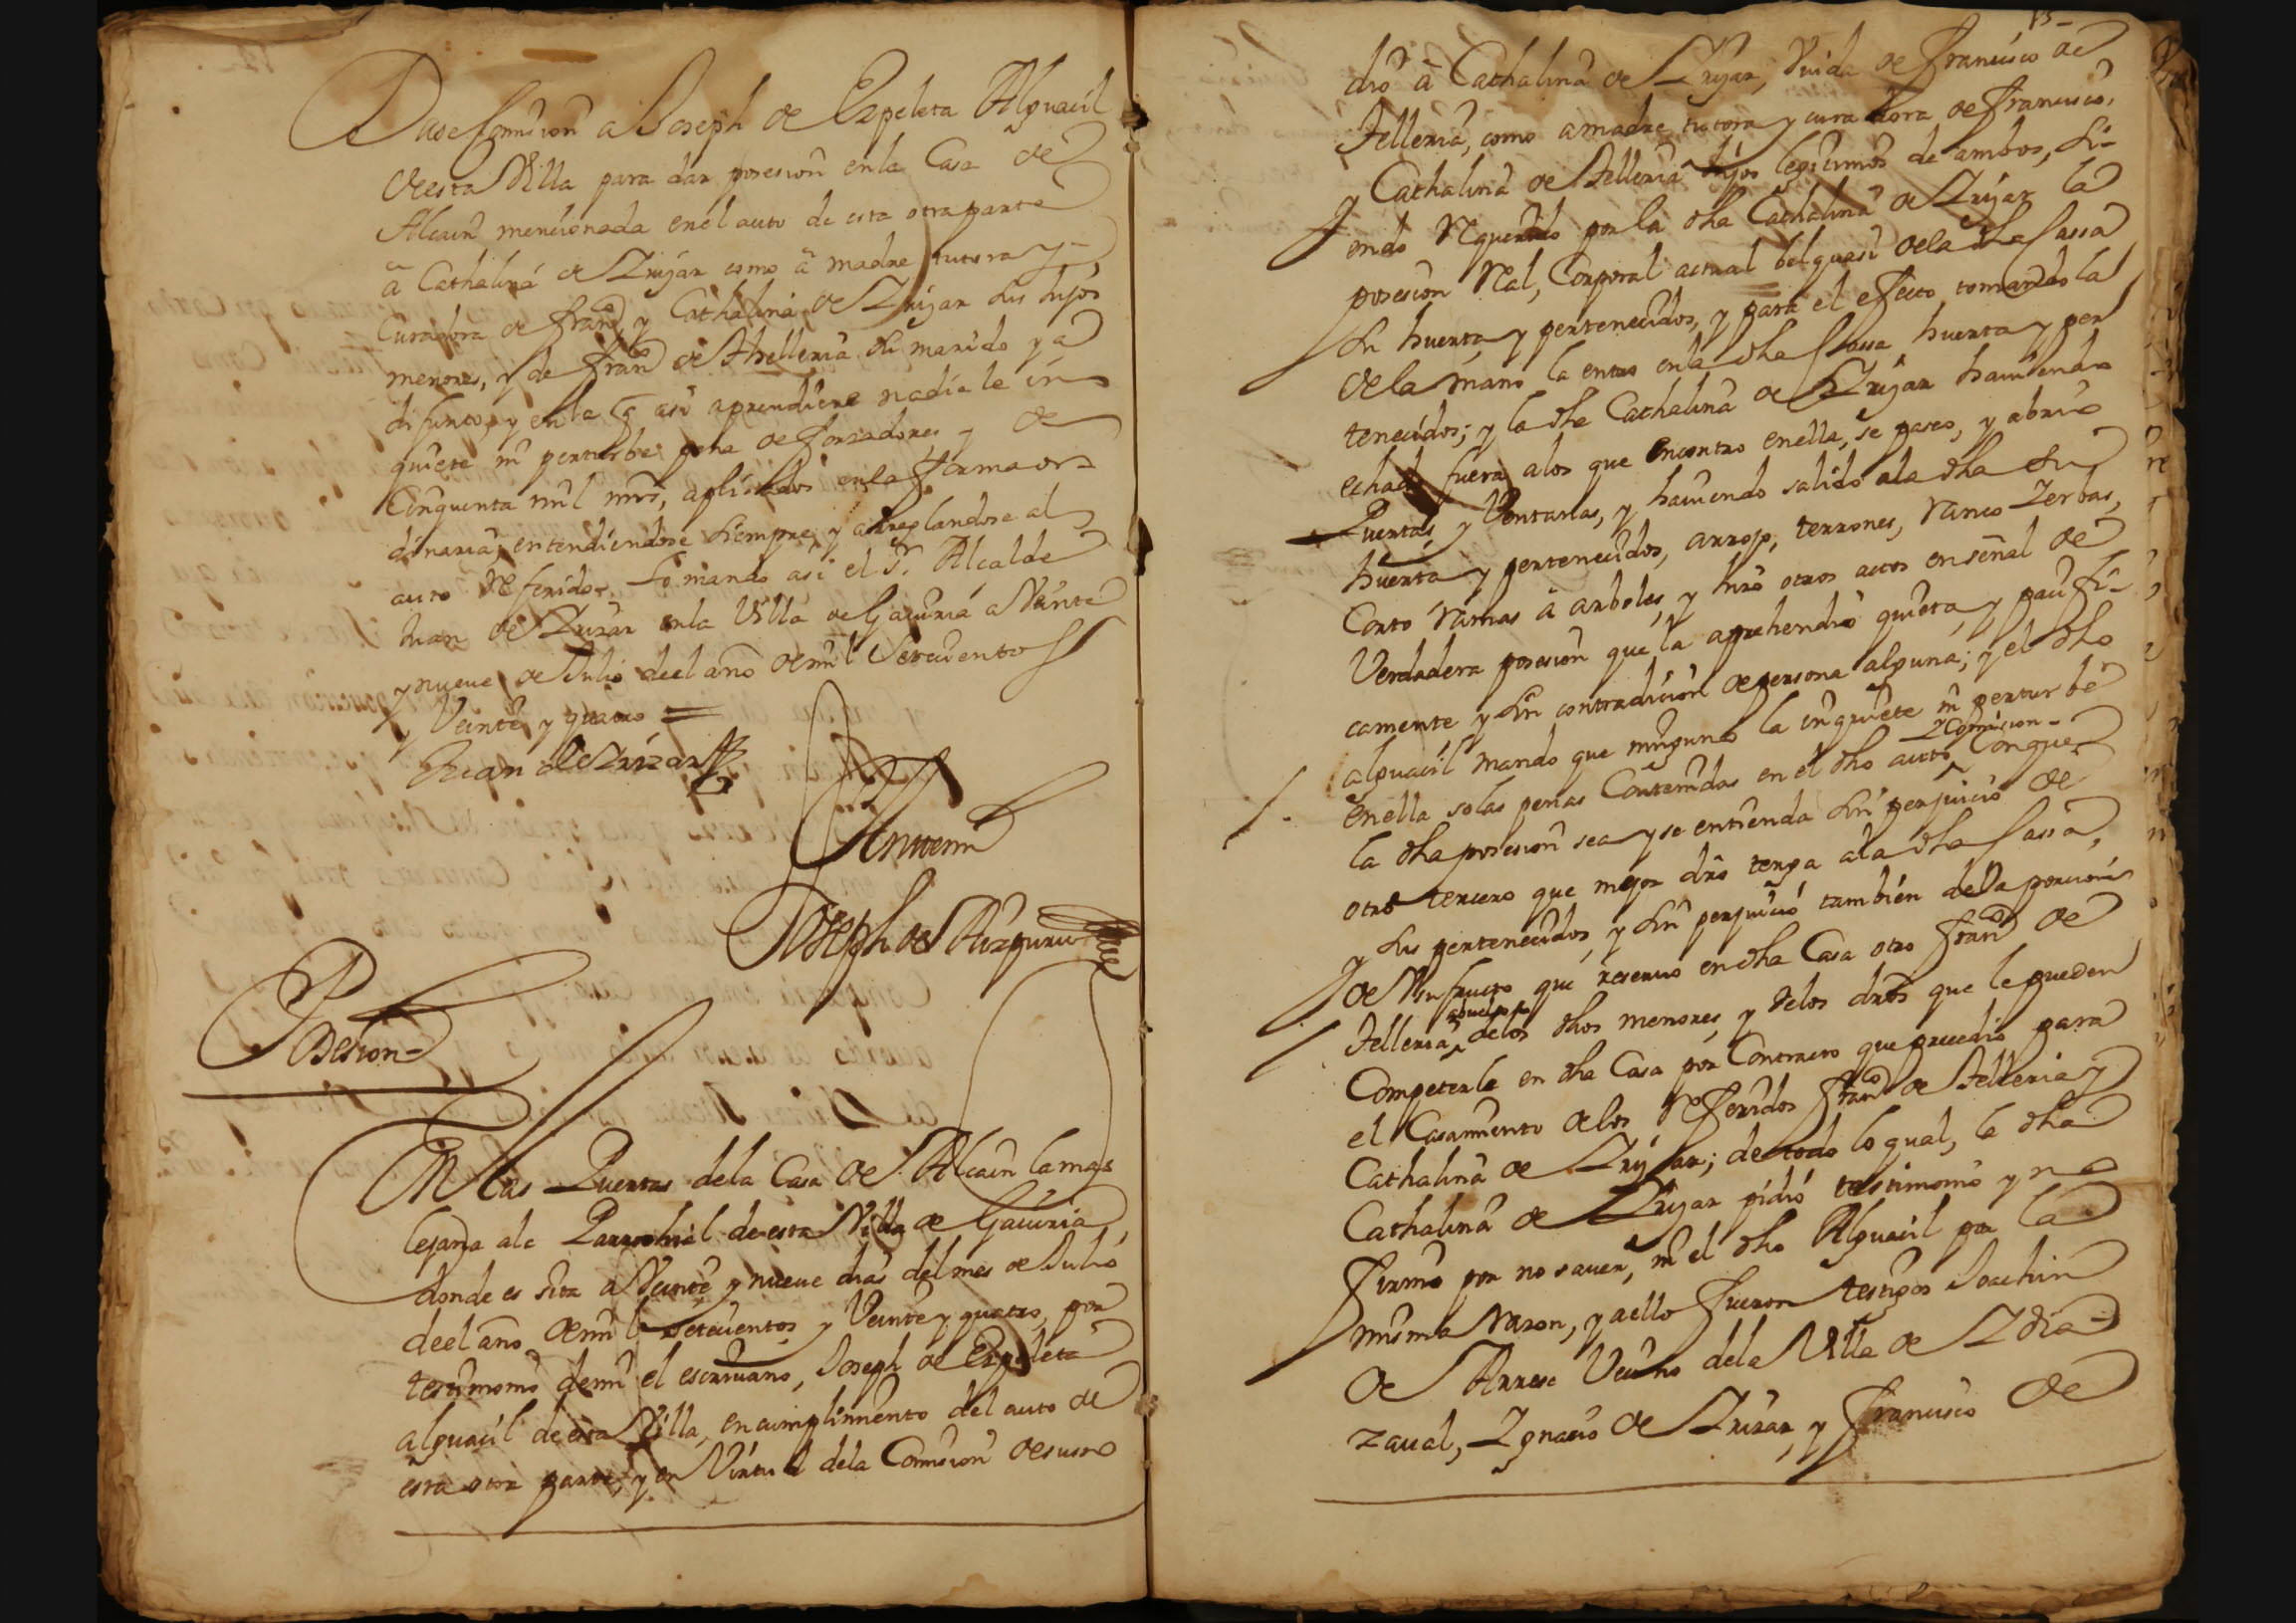 Dase Comision a Joseph de Ezpeleta Alguacil
de esta Villa para dar posesion en la Casa de
Alcain mencionada en el auto de esta otra parte
à Cathalina de Irijar como à madre tutora y
Curadora de franco y Cathalina de Irijar sus hijos
menores, y de franco de Thelleria su marido ya
difunto, y en la q asi aprendiere nadie le in
quiete ni perturbe pena de forzadores y de
Cinquenta mil mrs, aplicados en la forma or-
dinaria, entendiendose siempre y arreglandose al
auto referido. Lo mando asi el Sr. Alcalde
Juan de Irizar en la Villa de Gaviria a Veinte
y nueve de Julio de el año de mil Setecientos
y Veinte y quatro =
Juan de Irizar
Ante mi
Joseph de Aizpuru
Posesion
En las Puertas de la Casa de Alcain la mas
lejana a la Parrochial de esta Villa de Gaviria,
donde es sita a Veinte y nueve dias del mes de Julio
de el año de mil setecientos y Veinte y quatro, por
testimonio de mi el escrivano, Joseph de Ezpeleta
alguacil de esta Villa, en cumplimiento del auto de
esta otra parte, y en Virtud de la Comision de suso
dio à Cathalina de Irijar, Viuda de Francisco de
Telleria, como a madre tutora y curadora de Francisco,
y Cathalina de Telleria hijos legitimos de ambos, si-
endo requerido por la dha Cathalina de Irijar la
posesion Real, Corporal actual belquasi de la dha Cassa
su huerta y pertenecidos, y para el efecto tomandola
de la mano la entro en la dha Cassa huerta y per
tenecidos; y la dha Cathalina de Irijar haviendo
echado fuera a los que encontro en ella, se paseo, y abrio
Puertas y Ventanas, y haviendo salido a la dha su
huerta y pertenecidos, arrojo, terrones, ranco Zerbas,
Corto ramas à arboles, y hizo otros actos en señal de
Verdadera posesion que la aprehendiò quieta, y pacifi-
camente y sin contradicion de persona alguna; y el dho
alguacil mando que ninguno la inquiete ni perturbe
y Comision-
en ella so las penas Contenidas en el dho auto, Conque
la dha posesion sea y se entienda sin perjuicio de
otro tercero que mejor dro tenga a la dha Cassa,
y sus pertenecidos, y sin perjuicio tambien de la porcion
de Usufructo que reservo en dha Casa otro franco de
Telleria, de los dhos menores y de los dros que le pueden
Competerle en dha Casa por Contrato que precedio para
el Casamiento de los referidos franco de Telleria y
Cathalina de Irijar; de todo lo qual, la dha
Cathalina de Irijar pidiò testimonio y no
firmo por no saver, ni el dho Alguacil por la
misma razon, y a ello fueron testigos Joachin
de Arrese Vecino de la Villa de Idia
zaval, Ignacio de Irizar, y Francisco de